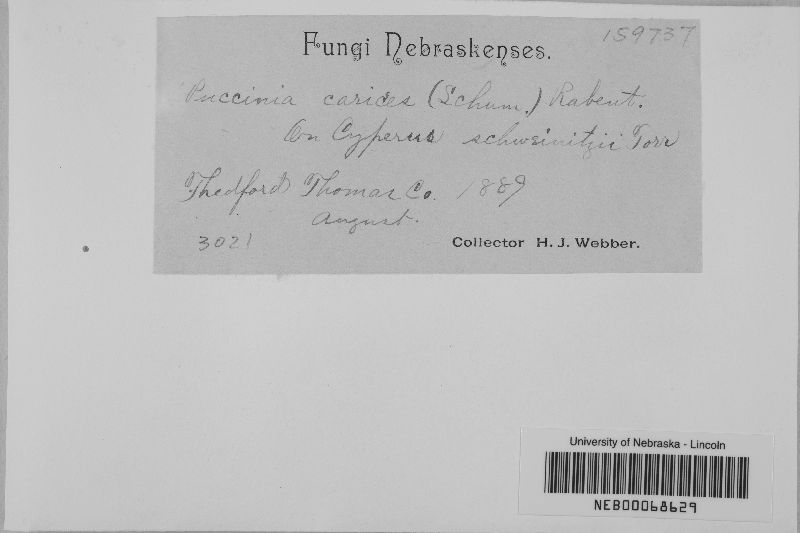 Fungi Nebraskenses.
159737
Puccinia carices (Schum.) Rabent.
On Cyperus schweinitzii Torr
Thedford Thomas Co. 1889
August.
3021
Collector H. J. Webber.
University of Nebraska - Lincoln
NEB00068629